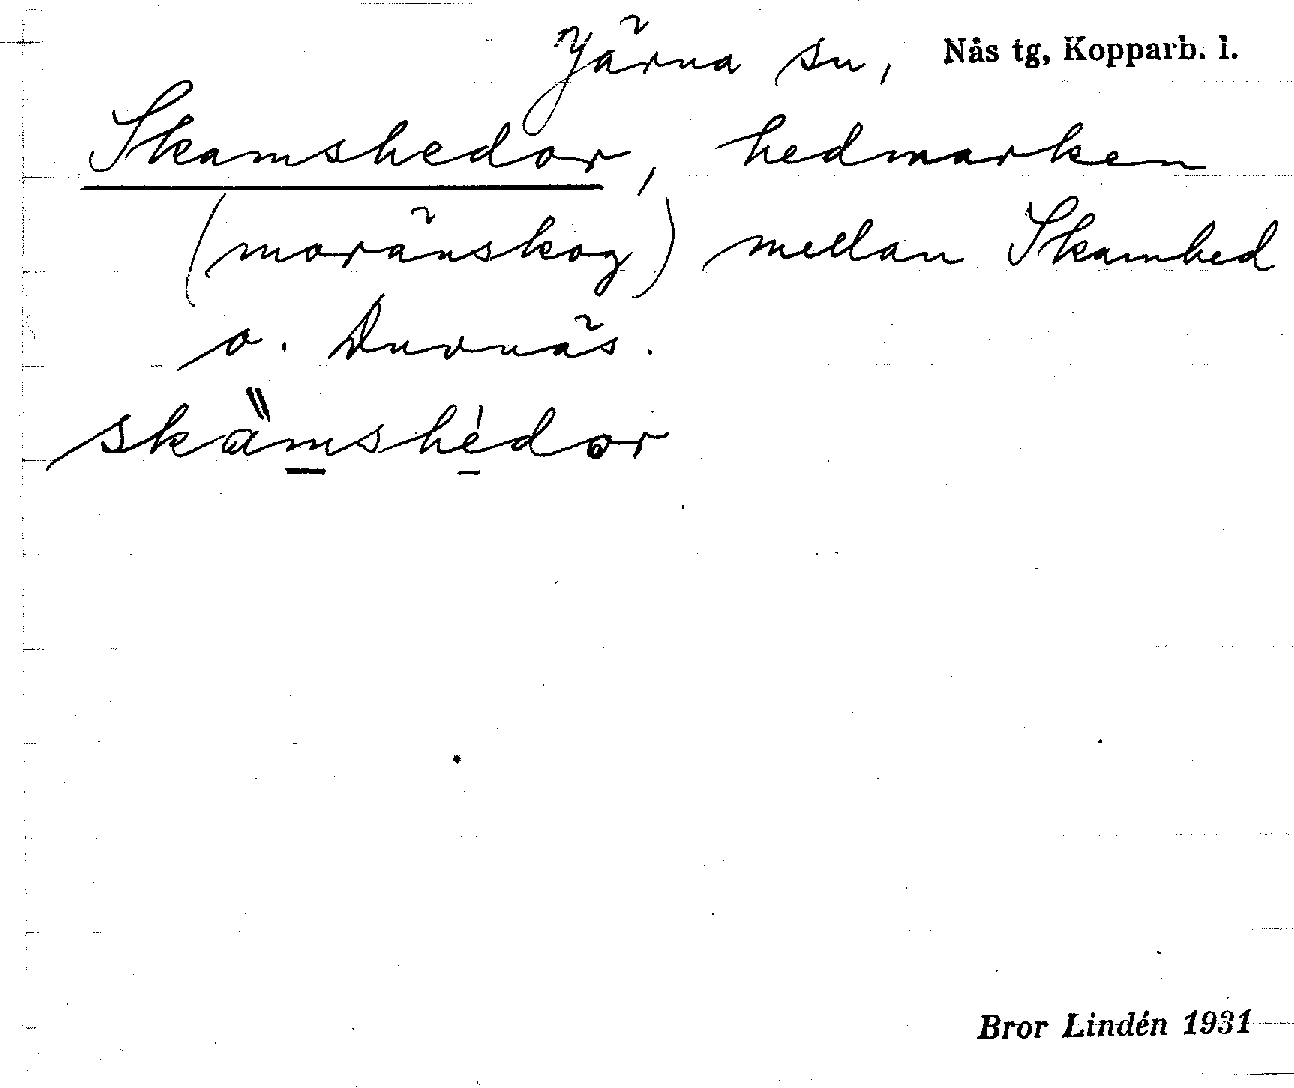 Järna sn, Nås tg, Kopparb. l.
Skamshedor, hedmarken
(moränskog) mellan Skamhed
o. Durnäs.
skàmshédor
Bror Lindén 1931